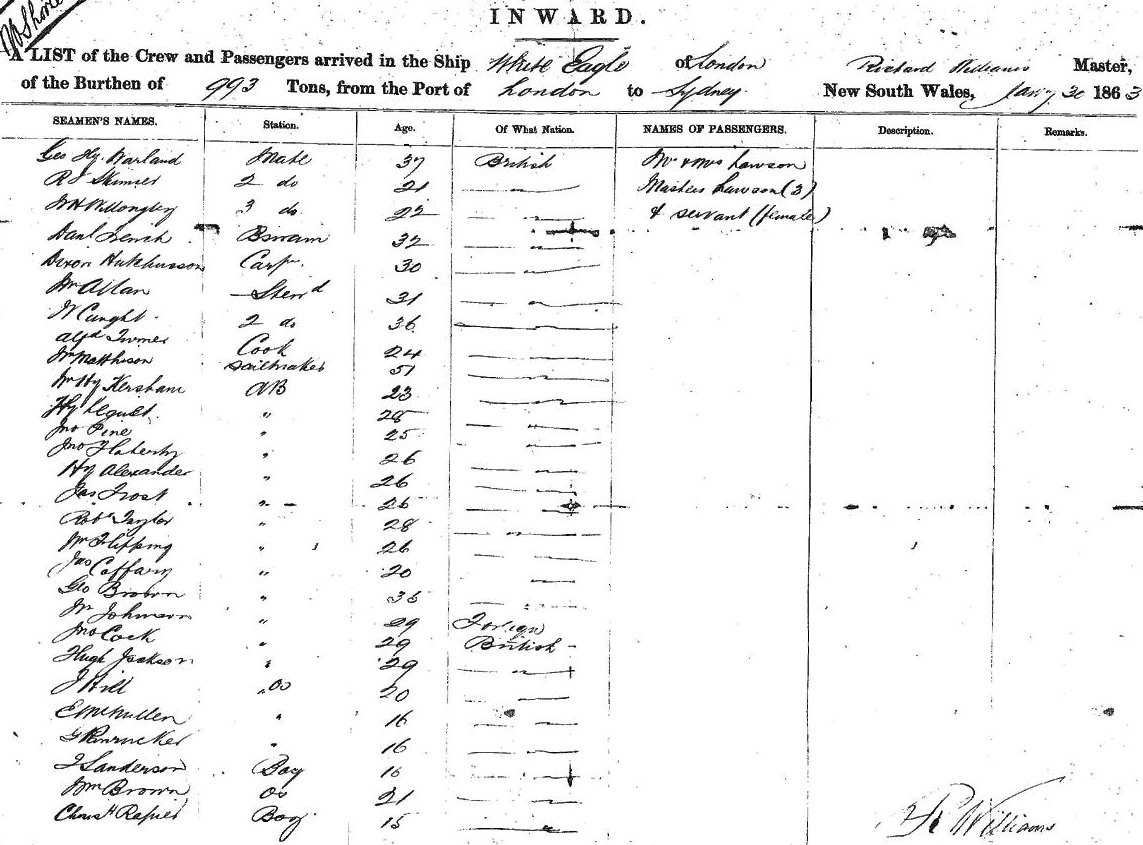 INWARD.
A LIST of the Crew and Passengers arrived in the Ship White Eagle of London Richard Williams Master,
of the Burthen of 993 Tons, from the Port of London to Sydney New South Wales, Jany 30 1863
SEAMEN'S NAMES. Station. Age. Of What Nation. NAMES OF PASSENGERS. Description. Remarks.
Geo Hy. Warland Mate 37 British Mr & Mrs Lawson
R J Skinner 2 do 21 Masters Lawson (3)
3 do 22 & servant (female)
Danl French Bswain 32
Dixon Hutchinson Carpr. 30
Wm Allan Stewd 31
2 do 36
Alfd Turner Cook 24
Wm Matthison Sailmaker 51
Wm Hy Kersham AB 23
Hy " 28
Jno Pine " 25
Jno Flaherty " 26
Hy Alexander " 26
Jas Frost " 26
Robt Taylor " 28
Wm Flipping " 26
Jas Caffary " 20
Geo Brown " 35
Wm Johnson " 29 Foreign
Jno Cock " 29 British
Hugh Jackson " 29
J Hill OS 20
E McMullen " 16
G " 16
J Sanderson Boy 16
Wm Brown OS 21
Chrisr Rapier Boy 15
R Williams